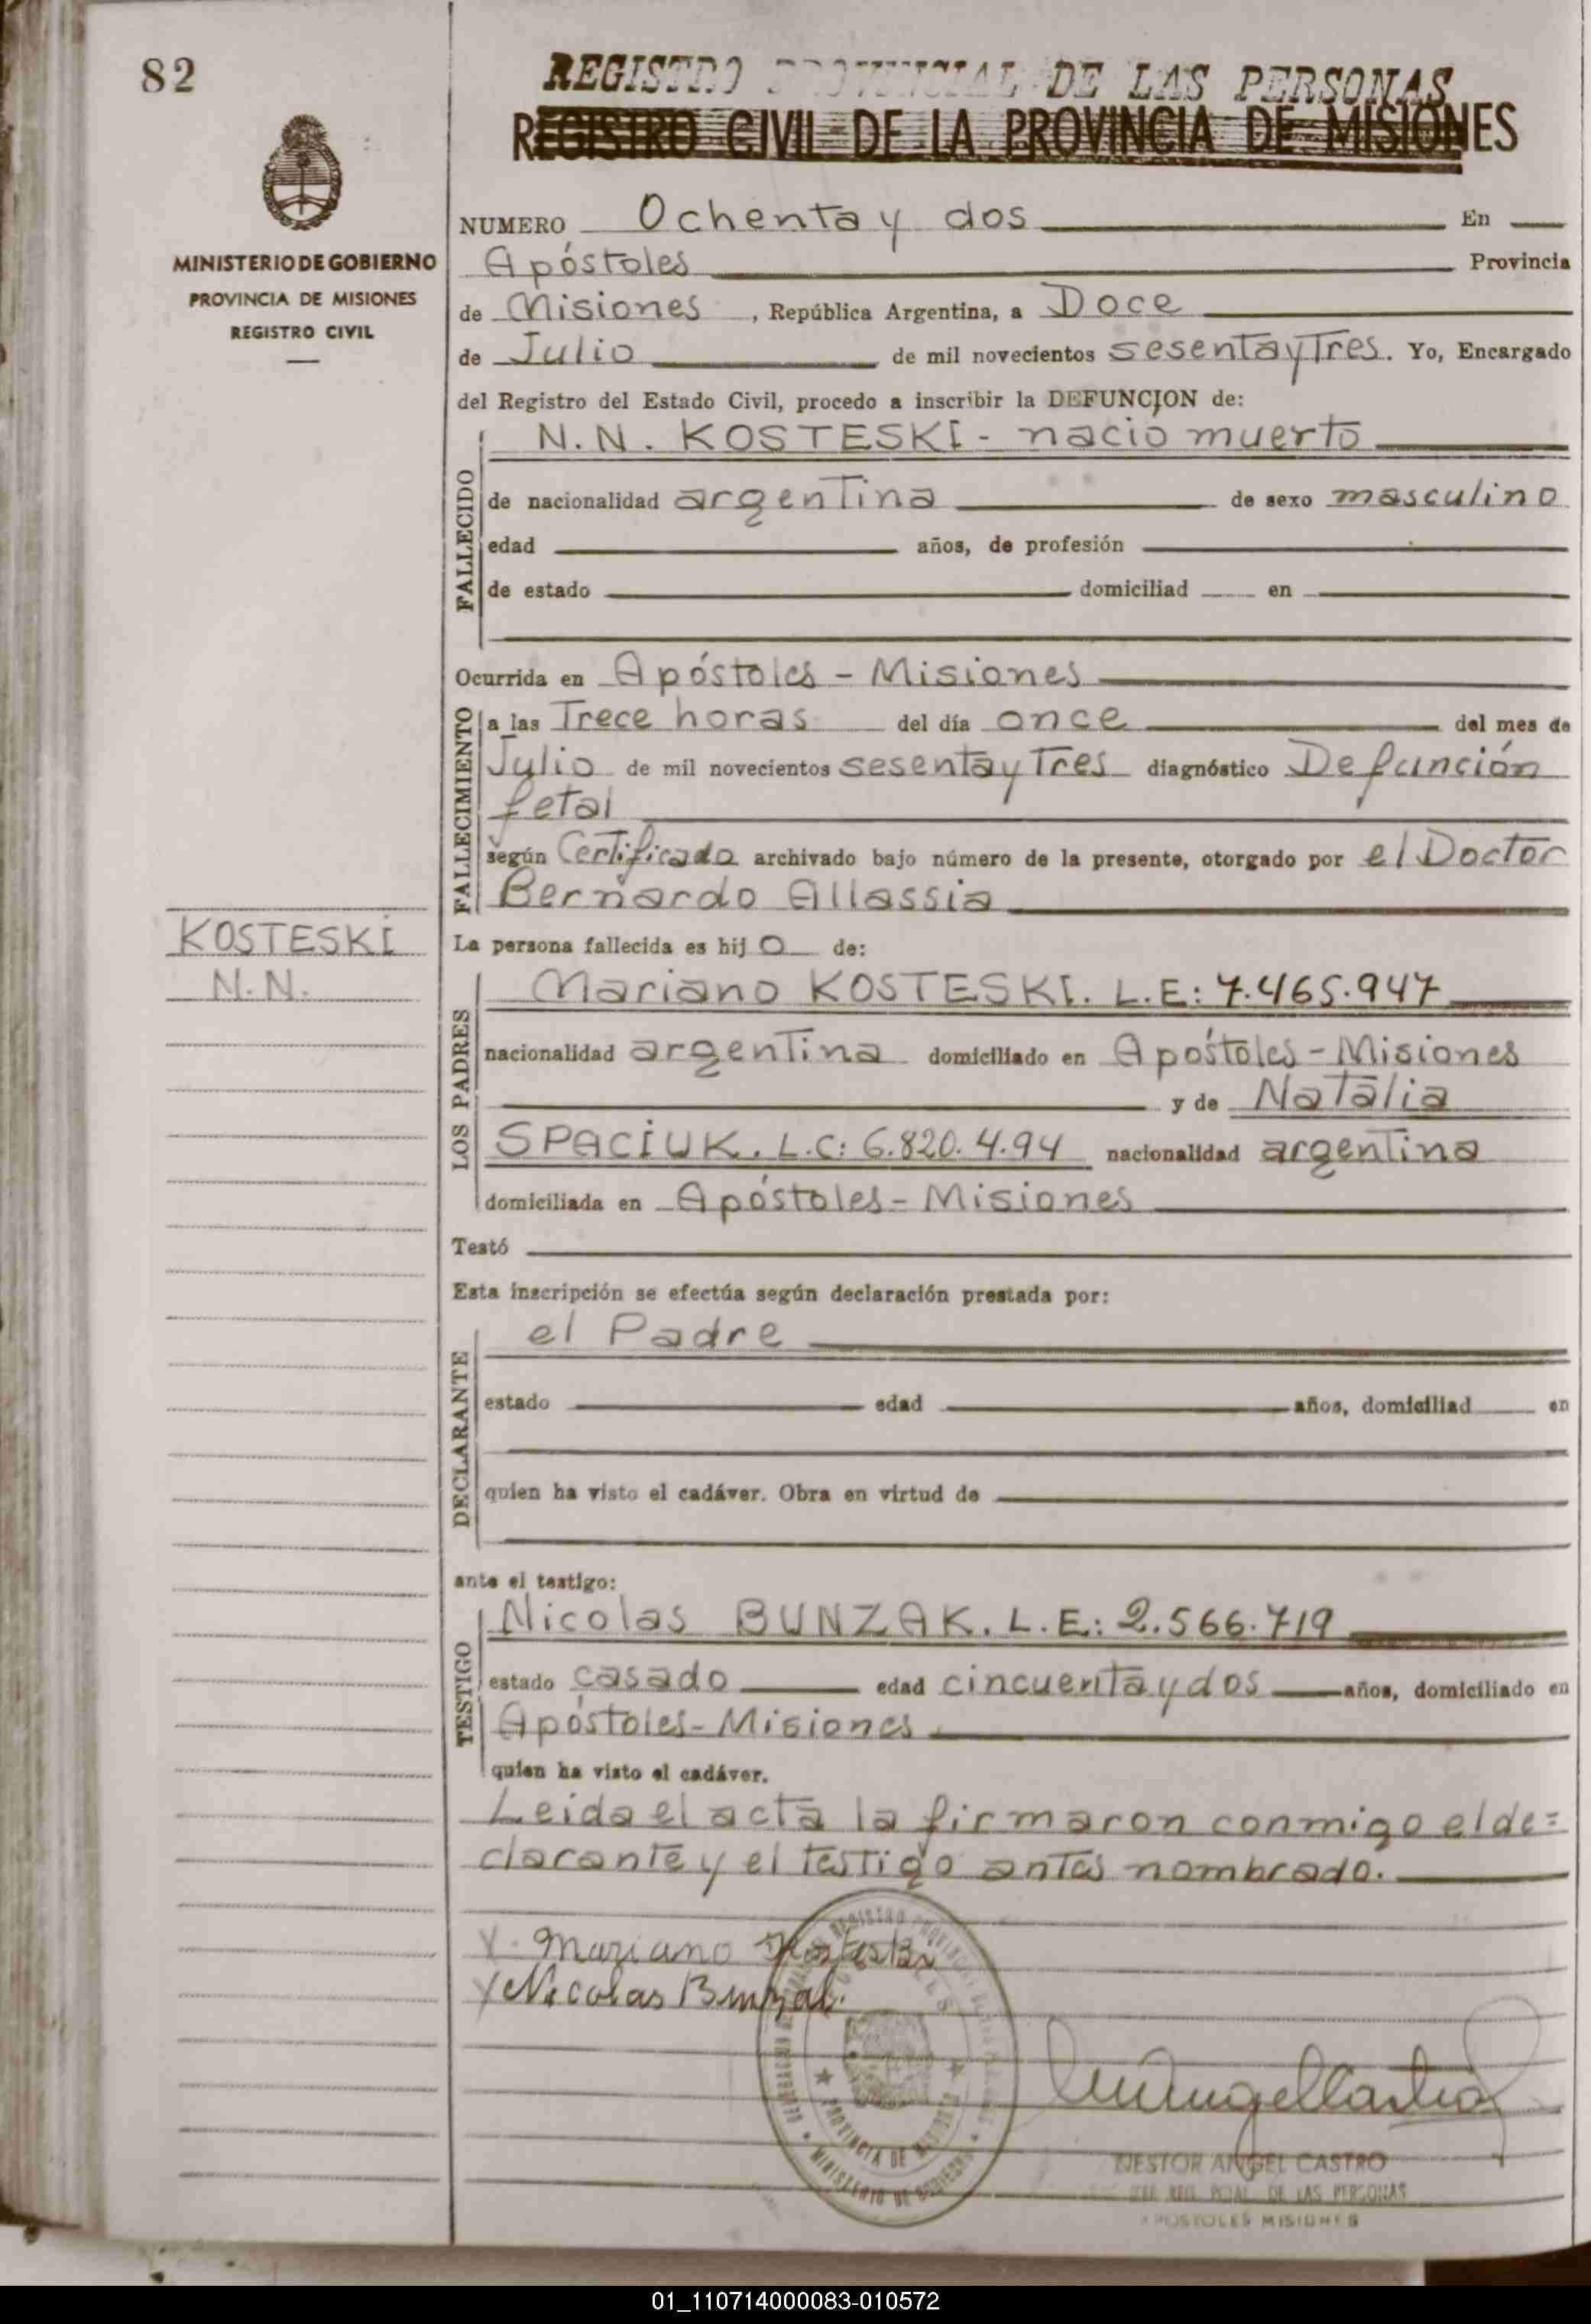 82
REGISTRO PROVINCIAL DE LAS PERSONAS
REGISTRO CIVIL DE LA PROVINCIA DE MISIONES
MINISTERIO DE GOBIERNO
PROVINCIA DE MISIONES
REGISTRO CIVIL
NUMERO Ochenta y dos En
Apóstoles Provincia
de Misiones, República Argentina, a Doce
de Julio de mil novecientos sesenta y Tres. Yo, Encargado
del Registro del Estado Civil, procedo a inscribir la DEFUNCION de:
FALLECIDO
N.N. KOSTESKI - nacio muerto
de nacionalidad argentina de sexo masculino
edad años, de profesión
de estado domiciliad en
Ocurrida en Apóstoles - Misiones
FALLECIMIENTO
a las Trece horas del día once del mes de
Julio de mil novecientos sesenta y Tres diagnóstico Defunción
fetal
según Certificado archivado bajo número de la presente, otorgado por el Doctor
Bernardo Allassia
KOSTESKI
N.N.
La persona fallecida es hijo de:
LOS PADRES
Mariano KOSTESKI. L.E: 7.465.947
nacionalidad argentina domiciliado en Apóstoles - Misiones
y de Natalia
SPACIUK. L.C: 6.820.4.94 nacionalidad argentina
domiciliada en Apóstoles - Misiones
Testó
Esta inscripción se efectúa según declaración prestada por:
DECLARANTE
el Padre
estado edad años, domiciliad en
quien ha visto el cadáver. Obra en virtud de
ante el testigo:
TESTIGO
Nicolas BUNZAK. L.E: 2.566.719
estado casado edad cincuenta y dos años, domiciliado en
Apóstoles - Misiones
quien ha visto el cadáver.
Leida el acta la firmaron conmigo el de=
clarante y el testigo antes nombrado.
X Mariano Kosteski
X Nicolas Bunzak.
PROVINCIA DE MISIONES
MINISTERIO DE GOBIERNO
NESTOR ANGEL CASTRO
JEFE REG. PCIAL. DE LAS PERSONAS
APOSTOLES MISIONES
01_110714000083-010572